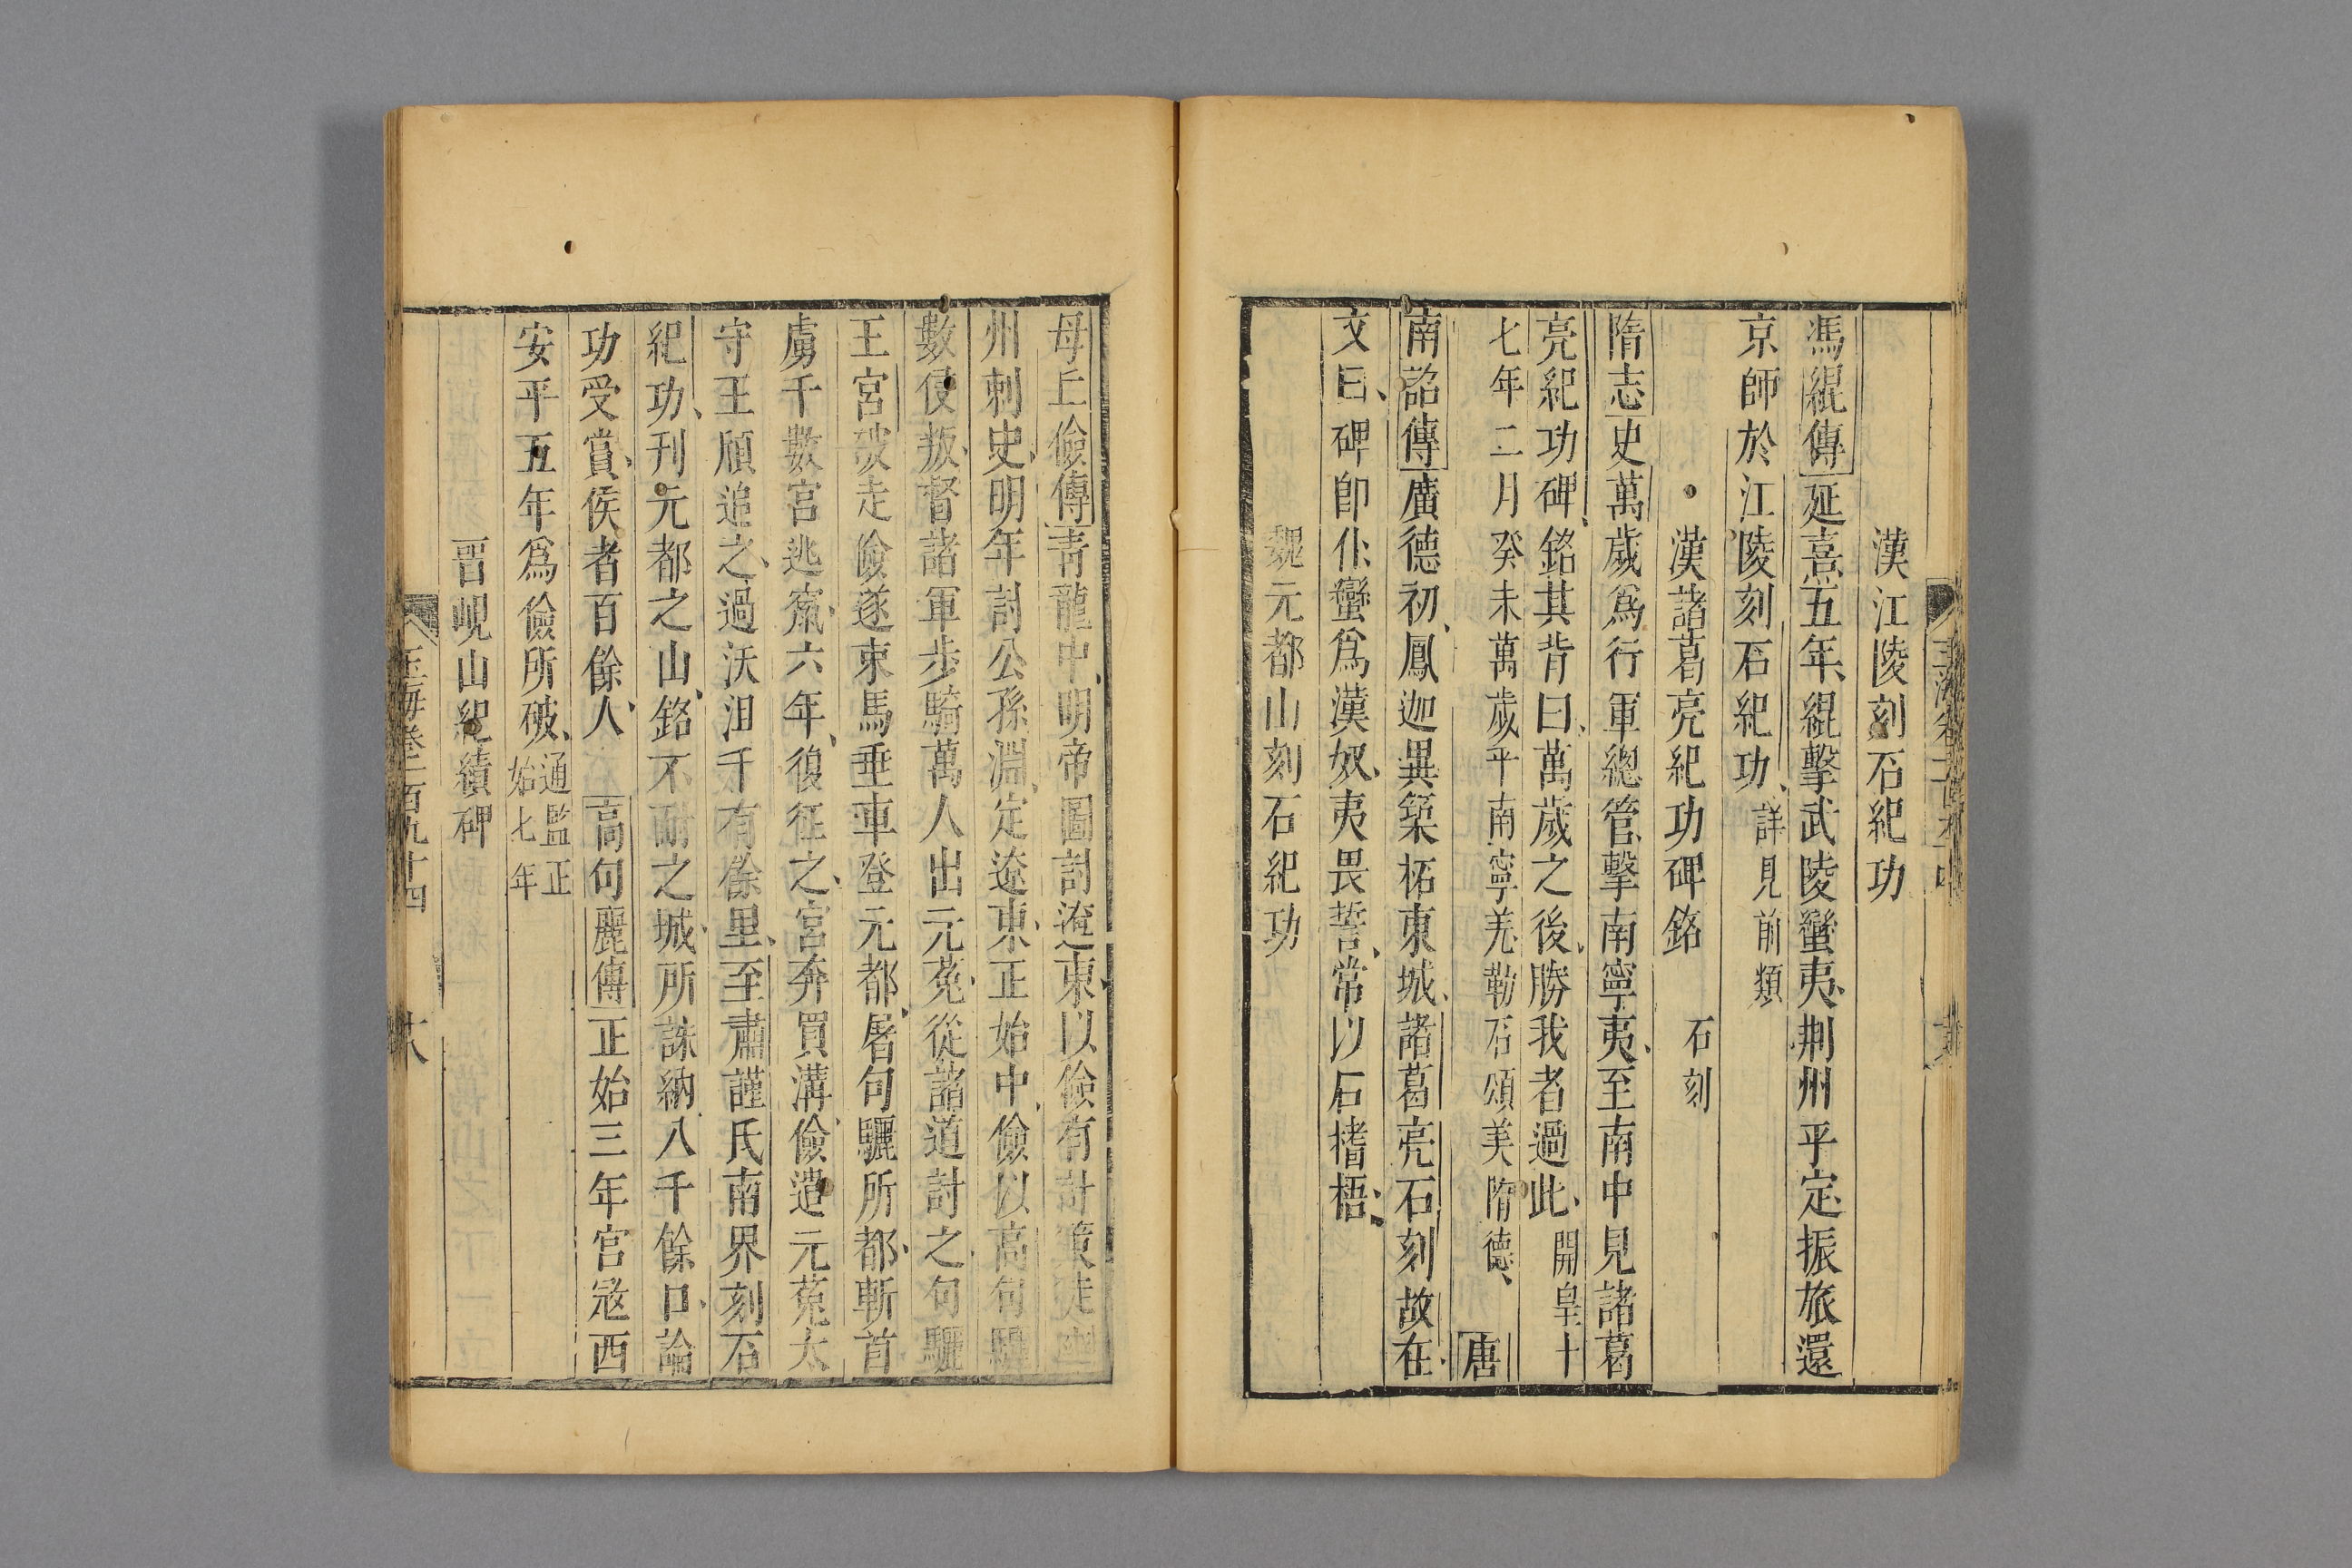 漢江陵刻石紀功
馮緄傳延熹五年緄擊武陵蠻夷荆州平定振旅還
京師於江陵刻石紀功詳見前類
漢諸葛亮紀功碑銘 石刻
隋志史萬歲爲行軍總管擊南寧夷至南中見諸葛
亮紀功碑銘其背曰萬歲之後勝我者過此開皇十
七年二月癸未萬歲平南寧羌勒石頌美隋德 唐
南詔傳廣德初鳳迦異築柘東城諸葛亮石刻故在
文曰碑卽仆蠻爲漢奴夷畏誓常以石搘梧
魏元都山刻石紀功
母丘儉傳青龍中明帝圖討遼東以儉有計策徙幽
州刺史明年討公孫淵定遼東正始中儉以高句驪
數侵叛督諸軍步騎萬人出元菟從諸道討之句驪
王宮破走儉遂束馬垂車登元都屠句驪所都斬首
虜千數宮逃竄六年復征之宮奔買溝儉遣元菟太
守王頎追之過沃沮千有餘里至肅謹氏南界刻石
紀功刊元都之山銘不耐之城所誅納八千餘口論
功受賞侯者百餘人 高句麗傳正始三年宮寇西
安平五年爲儉所破通監正始七年
晉峴山紀績碑
玉海卷二百九十四 大